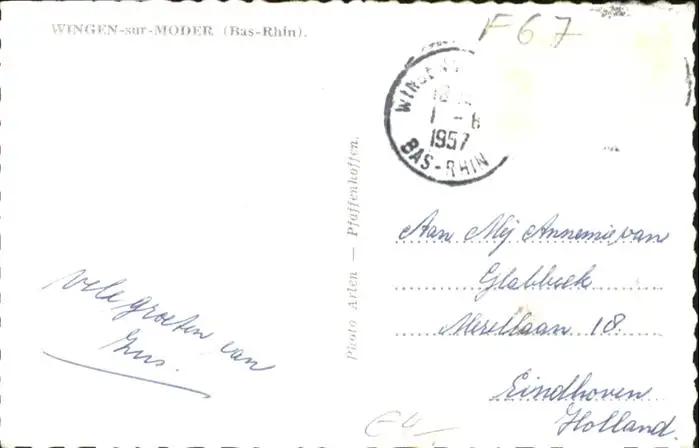 WINGEN-sur-MODER (Bas-Rhin).
F67
WINGEN
18
1 - 8
1957
BAS-RHIN
Photo Arlen — Pfaffenhoffen.
Aan Mej Annemie van
Glabbeek
Merellaan 18.
Eindhoven
Holland
Vele groeten van
Gus.